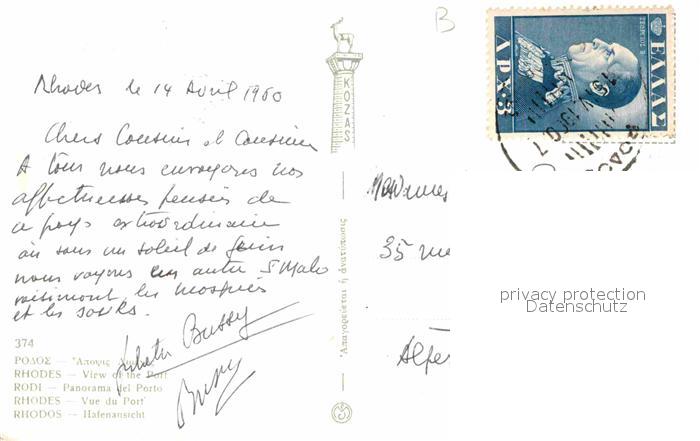 B
ΕΛΛΑΣ
ΓΕΩΡΓΙΟΣ Β
ΔΡΧ
KOZAS
Rhodes le 14 Avril 1960
Chers Cousins et Cousine
A tous nous envoyons nos
affectueuses pensées de
ce pays extraordinaire
où sous un soleil de Juin
nous voyons un autre St Malo
voisinant les mosquées
et les souks.
Bussy
Bussy
Mesdames
35 rue
Alfe
privacy protection
Datenschutz
Ἀπαγορεύεται ἡ ἀνατύπωσις
374
ΡΟΔΟΣ — Ἄποψις
RHODES — View of the Port
RODI — Panorama del Porto
RHODES — Vue du Port
RHODOS — Hafenansicht